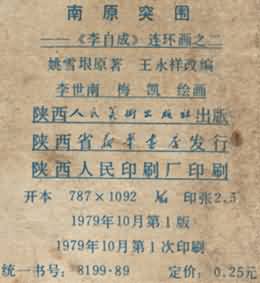 南原突围
——《李自成》连环画之二
姚雪垠原著 王永祥改编
李世南 梅凯 绘画
陕西人民美术出版社出版
陕西省新华书店发行
陕西人民印刷厂印刷
开本 787×1092 1/64 印张2.5
1979年10月第1版
1979年10月第1次印刷
统一书号：8199·89 定价：0.25元